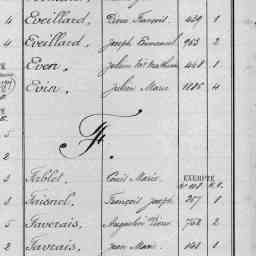 4 Eveillard, Pierre François. 429 1
4 Eveillard, Joseph Emmanuel 963 2
Even, Julien 448 1
Evin, Julien Marie 1186 4
F.
5
2
3 Fablet, Louis Marie. EXEMPTÉ
N° R. 1.
3 Faisnel, François Joseph 257 1
5 Faverais, Augustin Pierre 752 2
2 Favrais, Jean Marie 141 1